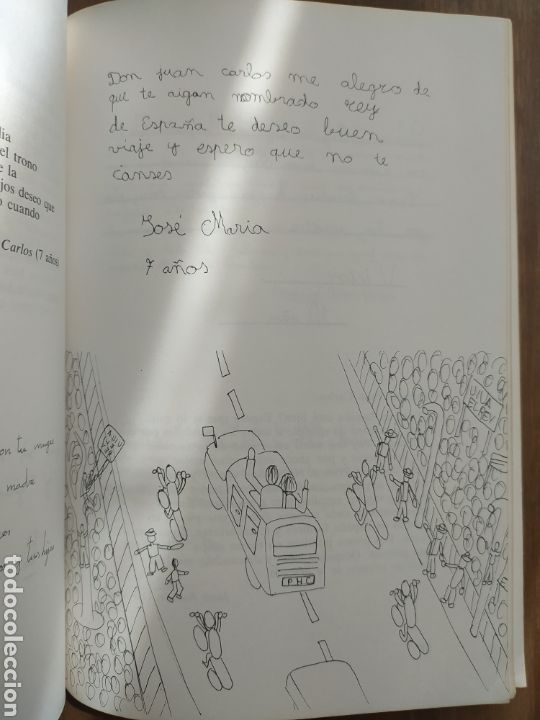 Don juan carlos me alegro de
que te aigan nombrado rey
de España te deseo buen
viaje y espero que no te
canses
José Maria
7 años
dia
el trono
e la
jos deseo que
o cuando
Carlos (7 años)
madre
PHC
todocoleccion